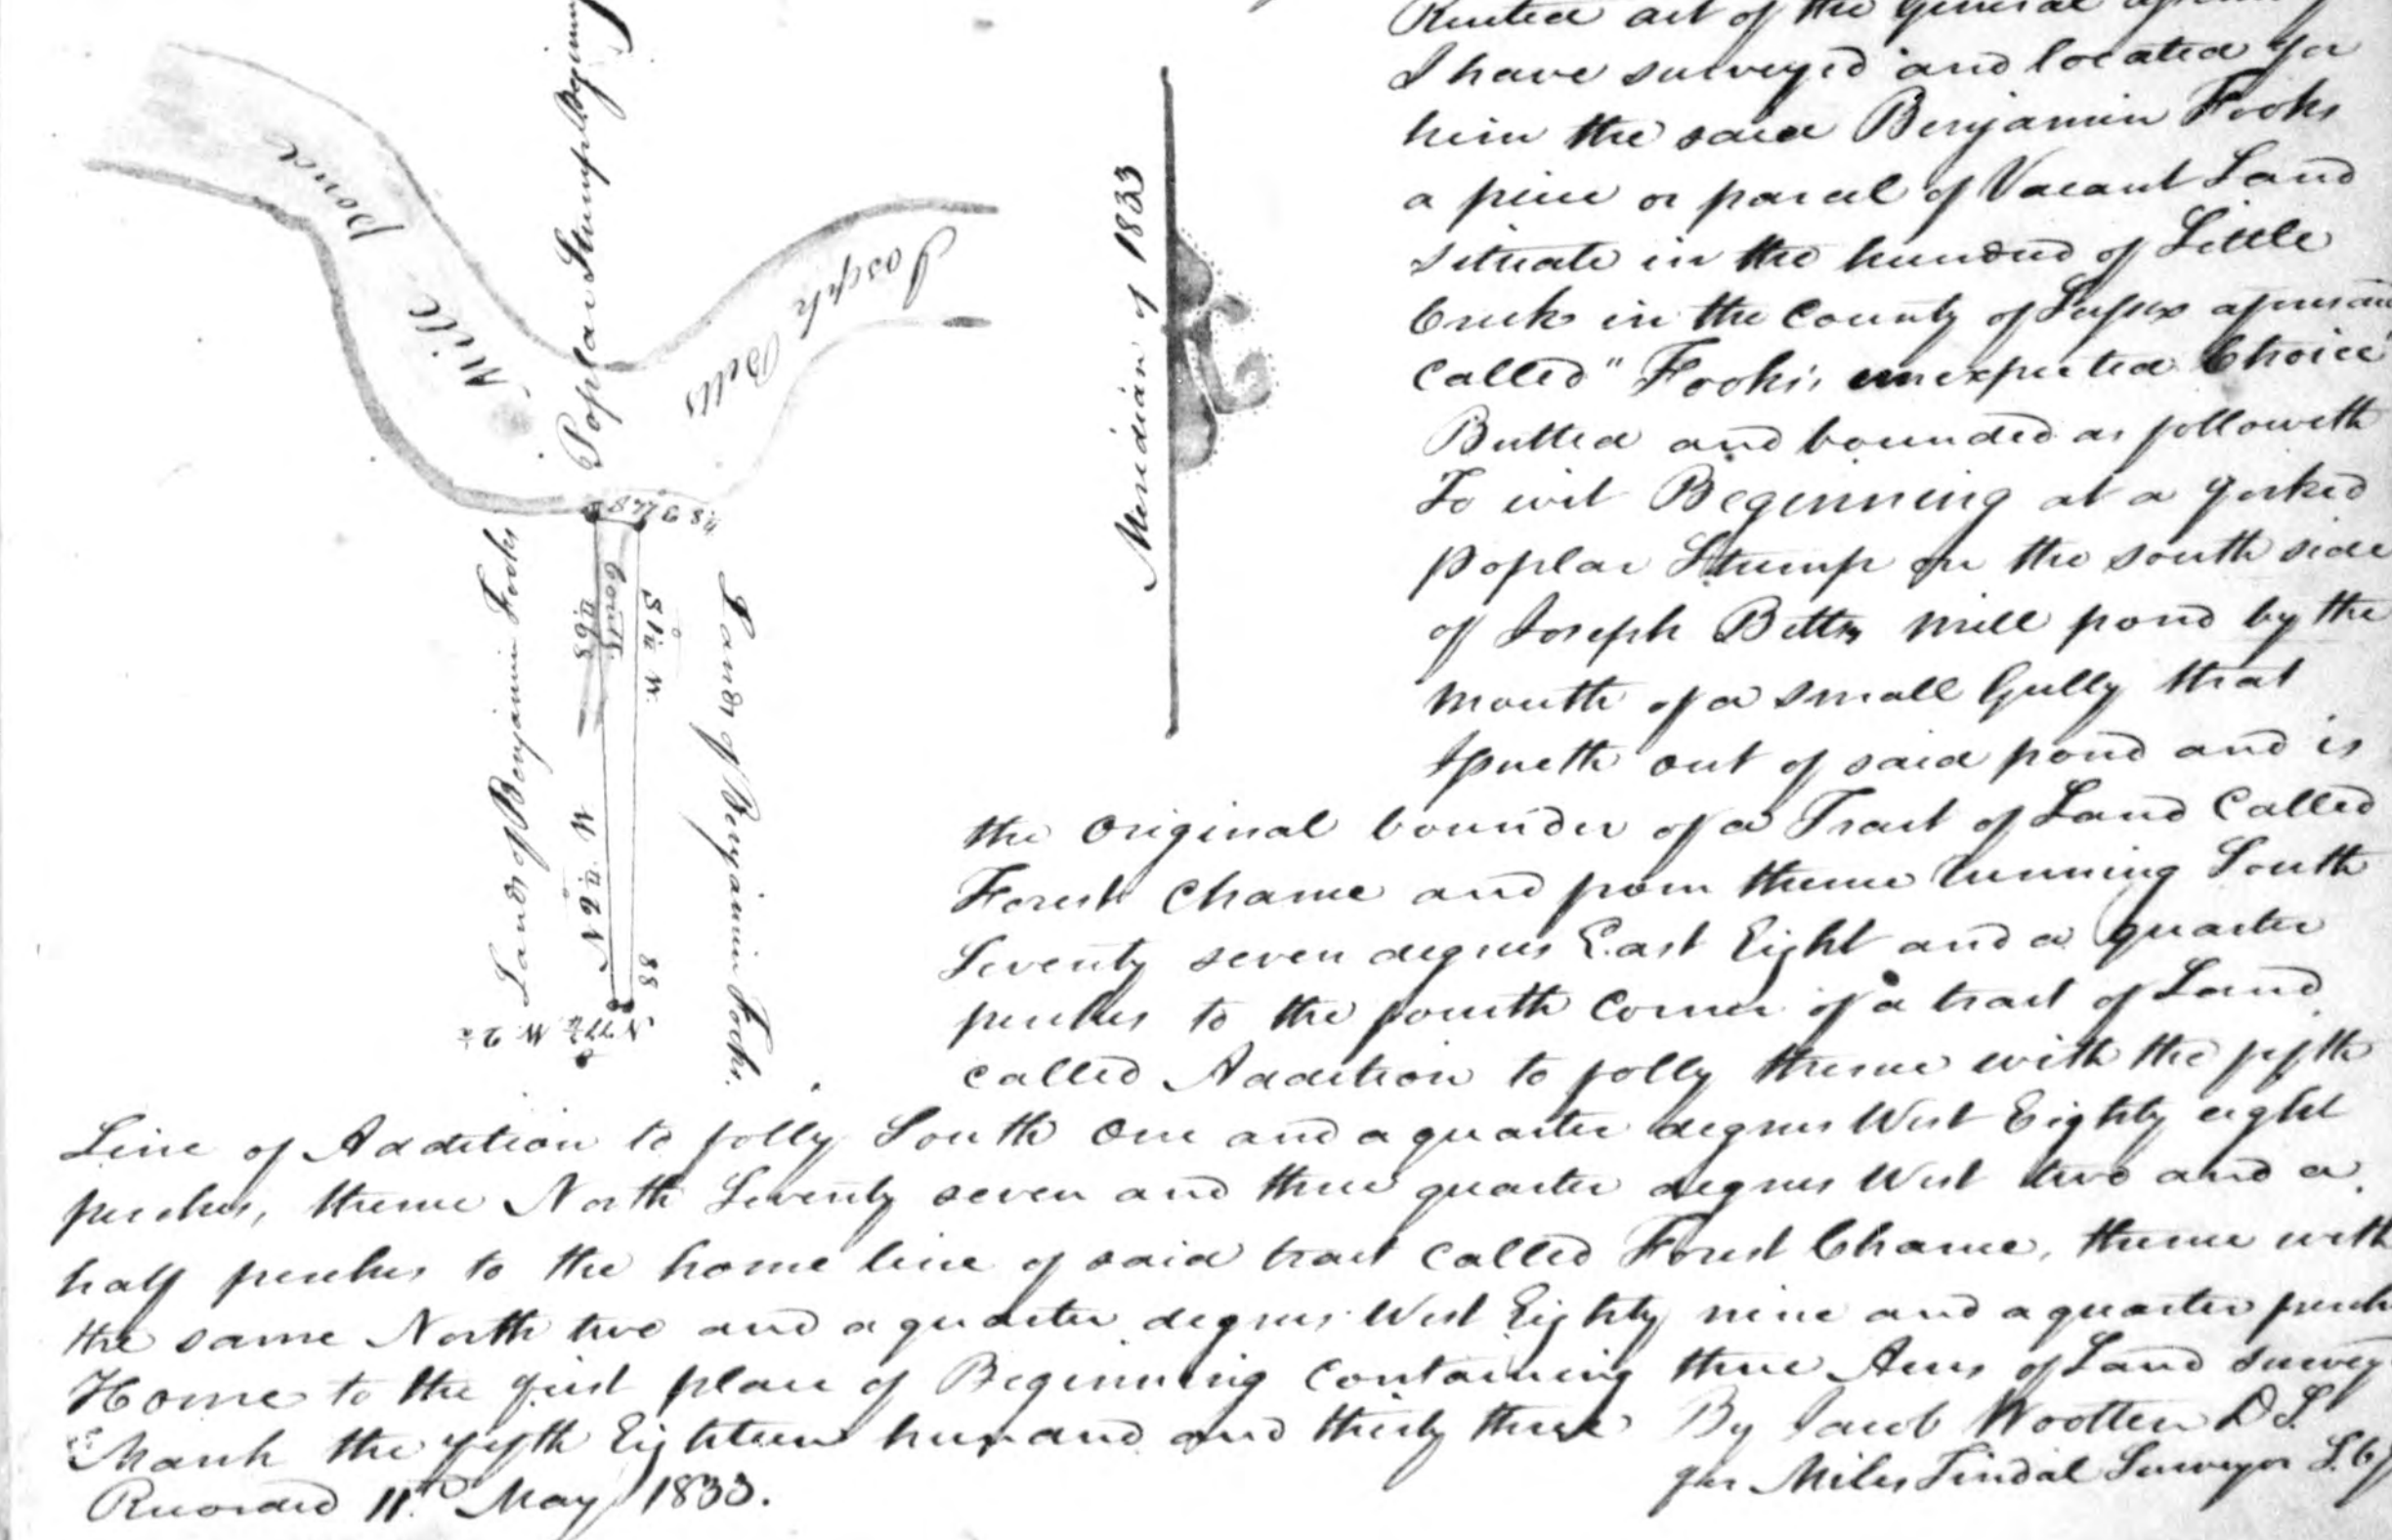 Poplar Stump Beginning
Mill Pond
Joseph Betts
Meridian of 1833
Lands of Benjamin Fooks
89 1/4
N 2 1/4 W
S 1 1/4 W
88
N 77 3/4 W 2 1/2
Lands of Benjamin Fooks
act of the General
I have surveyed and located for
him the said Benjamin Fooks
a piece or parcel of Vacant Land
situate in the hundred of Little
Creek in the County of Sussex aforesaid
Called "Fooks's unexpected Choice"
Butted and bounded as followeth
To wit Beginning at a forked
poplar Stump on the south side
of Joseph Betts mill pond by the
mouth of a small Gully that
Issueth out of said pond and is
the Original bounder of a Tract of Land Called
Forest Chance and from thence Running South
Seventy seven degrees East Eight and a quarter
perches to the fourth Corner of a tract of Land
called Addition to folly thence with the fifth
Line of Addition to folly South One and a quarter degrees West Eighty eight
perches, thence North Seventy seven and three quarter degrees West two and a
half perches to the home line of said tract Called Forest Chance, thence with
the same North two and a quarter degrees West Eighty nine and a quarter perch
Home to the first place of Beginning Containing three Acres of Land survey
March the fifth Eighteen hundred and thirty three By Jacob Wootten D.S.
for Miles Tindal Surveyor S.C.
Recorded 11th May 1833.